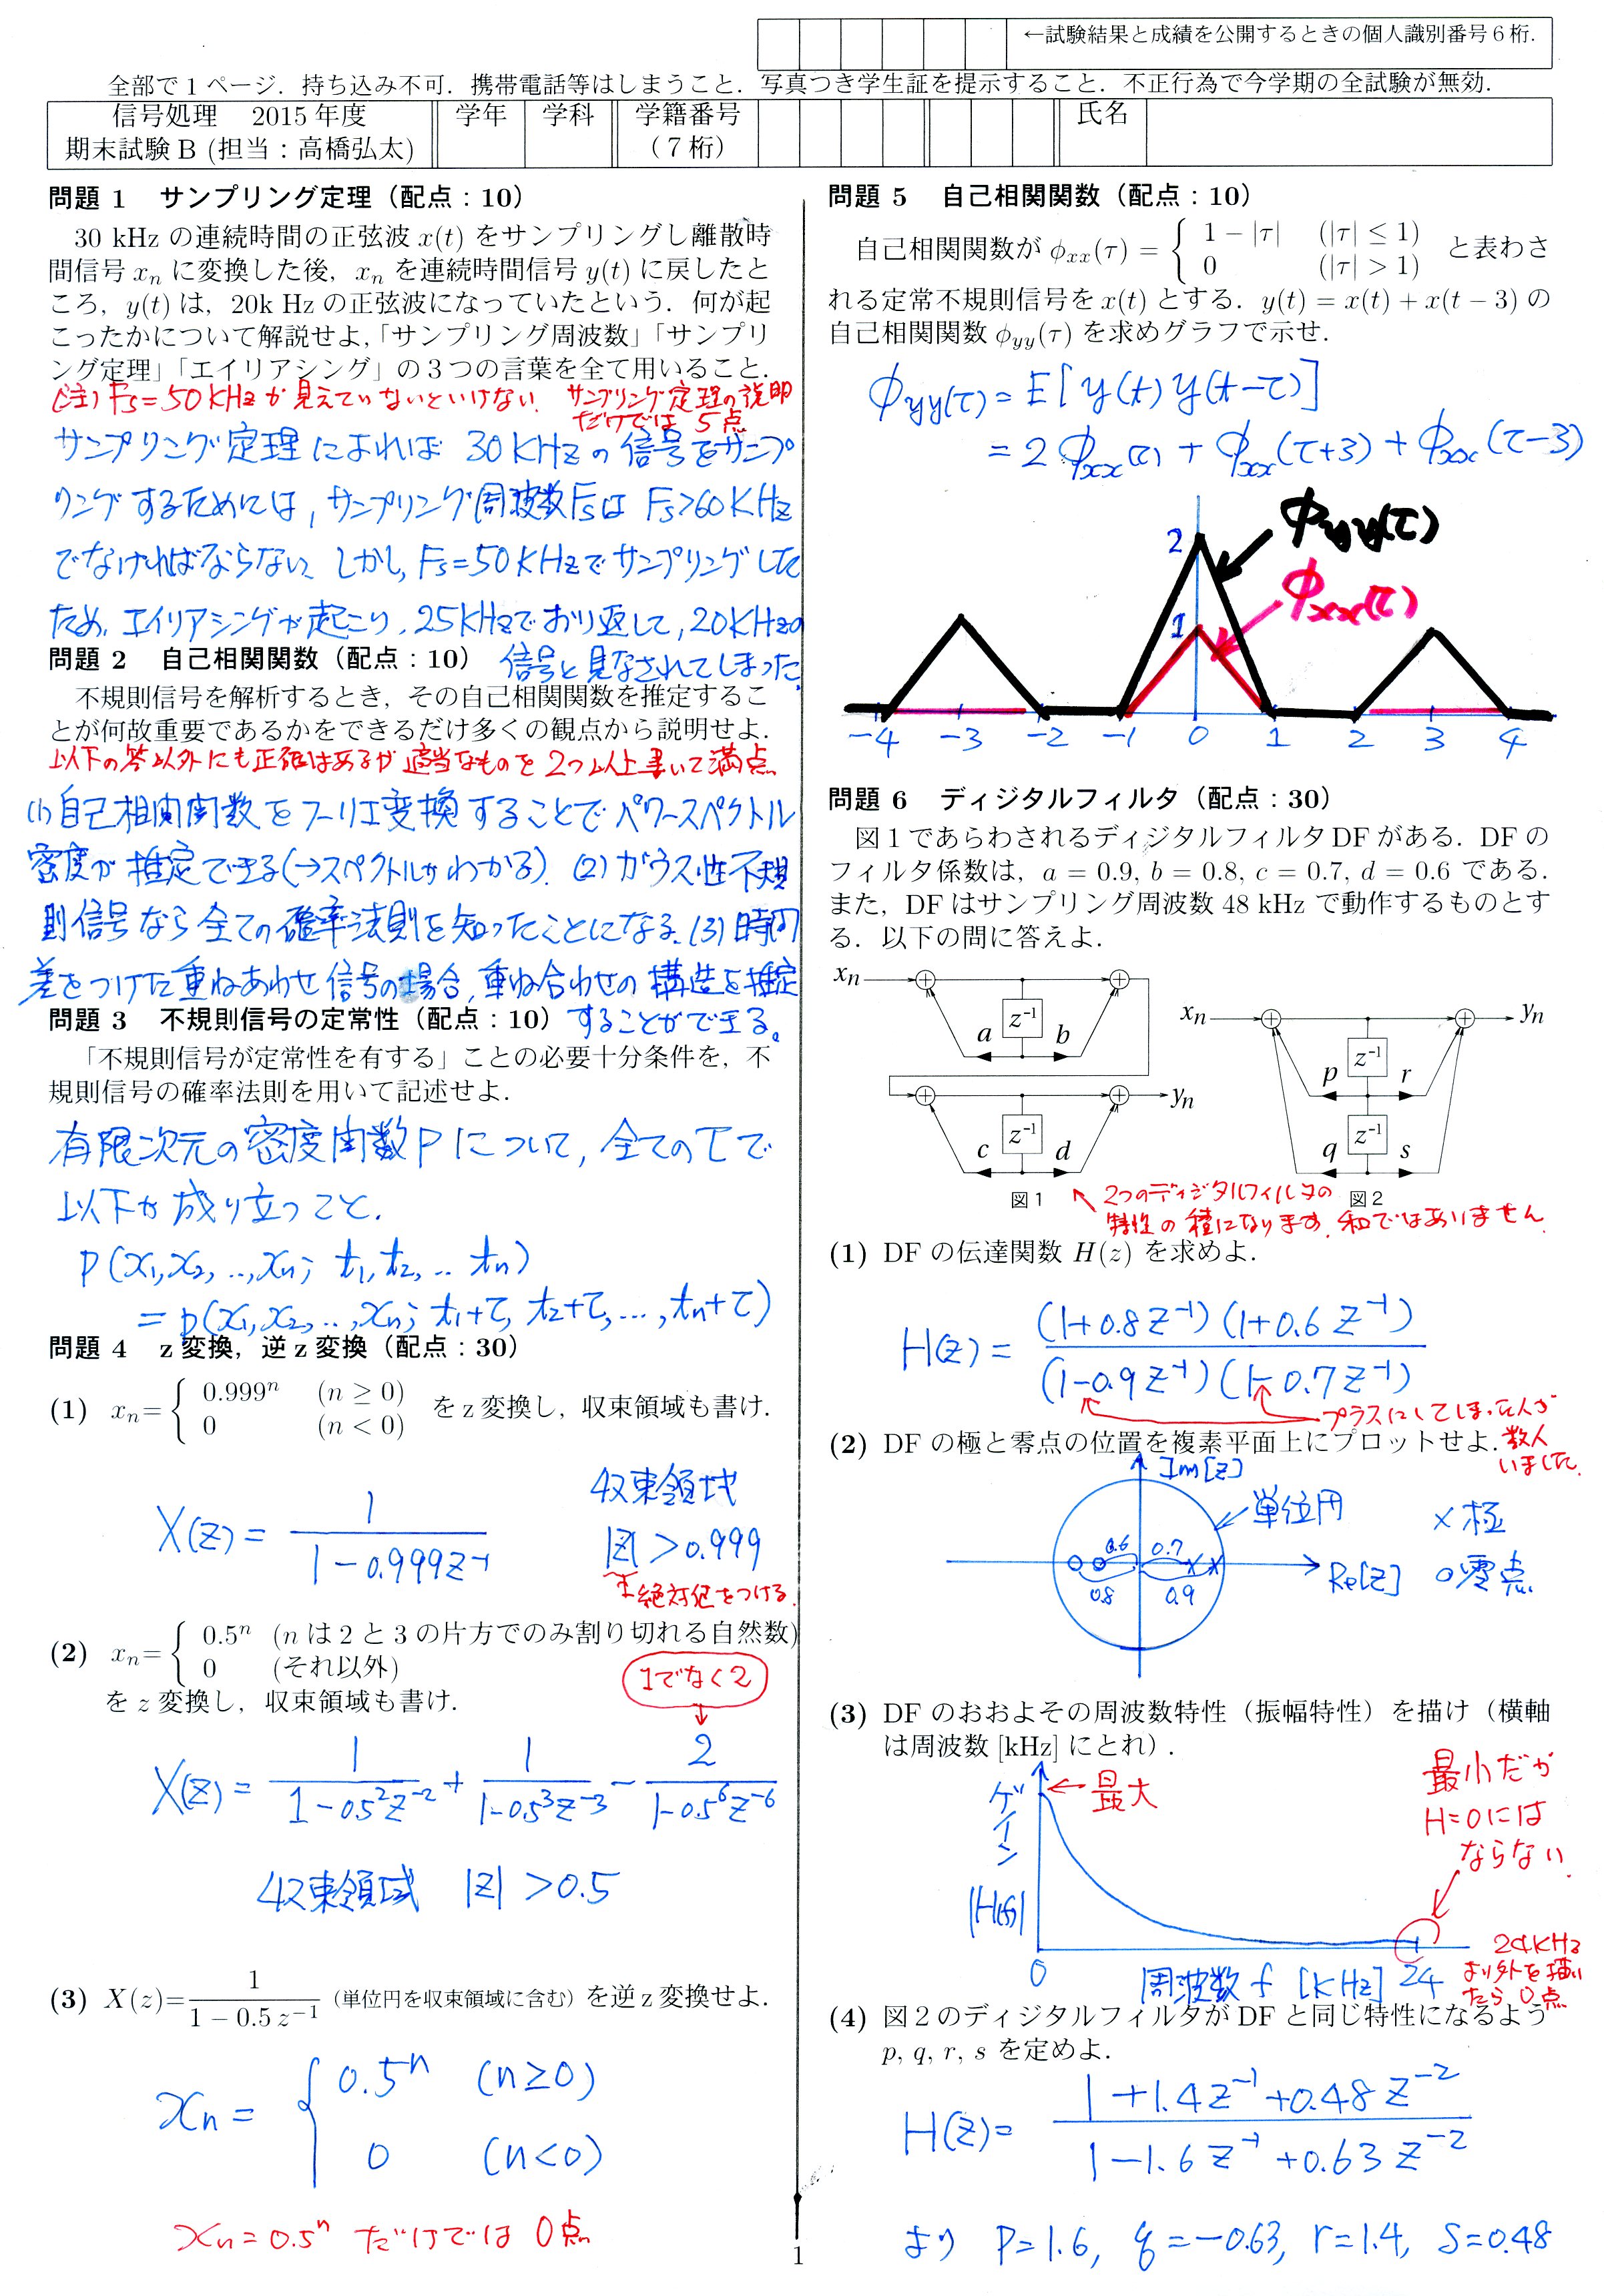 ←試験結果と成績を公開するときの個人識別番号6桁.
全部で1ページ. 持ち込み不可. 携帯電話等はしまうこと. 写真つき学生証を提示すること. 不正行為で今学期の全試験が無効.
信号処理 2015年度
期末試験B (担当:高橋弘太)
学年 学科 学籍番号(7桁) 氏名
問題 1 サンプリング定理(配点:10)
30 kHz の連続時間の正弦波 x(t) をサンプリングし離散時
間信号 xn に変換した後, xn を連続時間信号 y(t) に戻したと
ころ, y(t) は, 20k Hz の正弦波になっていたという. 何が起
こったかについて解説せよ,「サンプリング周波数」「サンプリ
ング定理」「エイリアシング」の3つの言葉を全て用いること.
(注) Fs=50KHzが見えていないといけない. サンプリング定理の説明
だけでは 5点
サンプリング定理によれば 30KHzの信号をサンプ
リングするためには, サンプリング周波数FsはFs>60KHz
でなければならない. しかし, Fs=50KHzでサンプリングした
ため, エイリアシングが起こり, 25KHzでおり返して, 20KHzの
信号と見なされてしまった.
問題 2 自己相関関数(配点:10)
不規則信号を解析するとき, その自己相関関数を推定するこ
とが何故重要であるかをできるだけ多くの観点から説明せよ.
以下の答以外にも正解はあるが適当なものを2つ以上書いて満点.
(1)自己相関関数をフーリエ変換することでパワースペクトル
密度が推定できる(→スペクトルがわかる). (2) ガウス性不規
則信号なら全ての確率法則を知ったことになる. (3) 時間
差をつけた重ねあわせ信号の場合, 重ね合わせの構造を推定
することができる。
問題 3 不規則信号の定常性(配点:10)
「不規則信号が定常性を有する」ことの必要十分条件を, 不
規則信号の確率法則を用いて記述せよ.
有限次元の密度関数Pについて, 全てのτで
以下が成り立つこと.
P(x1,x2,..,xn; t1,t2,..tn)
=p(x1,x2,..,xn; t1+τ, t2+τ,...,tn+τ)
問題 4 z変換, 逆z変換(配点:30)
(1) xn= { 0.999^n (n ≥ 0)
0 (n < 0) をz変換し, 収束領域も書け.
X(z) = 1/(1-0.999z^-1)
収束領域
|z| > 0.999
絶対値をつける.
(2) xn= { 0.5^n (n は2と3の片方でのみ割り切れる自然数)
0 (それ以外)
をz変換し, 収束領域も書け.
1でなく2
X(z) = 1/(1-0.5^2z^-2) + 1/(1-0.5^3z^-3) - 2/(1-0.5^6z^-6)
収束領域 |z| >0.5
(3) X(z)=1/(1 − 0.5 z^−1) (単位円を収束領域に含む) を逆z変換せよ.
xn = { 0.5^n (n≥0)
0 (n<0)
xn=0.5^n だけでは 0点
問題 5 自己相関関数(配点:10)
自己相関関数が φxx(τ) = { 1 − |τ| (|τ| ≤ 1)
0 (|τ| > 1) と表わさ
れる定常不規則信号を x(t) とする. y(t) = x(t) + x(t − 3) の
自己相関関数 φyy(τ) を求めグラフで示せ.
φyy(τ) = E[y(t)y(t-τ)]
= 2φxx(τ) + φxx(τ+3) + φxx(τ-3)
φyy(τ)
φxx(τ)
2
1
-4 -3 -2 -1 0 1 2 3 4
問題 6 ディジタルフィルタ(配点:30)
図1であらわされるディジタルフィルタDFがある. DFの
フィルタ係数は, a = 0.9, b = 0.8, c = 0.7, d = 0.6 である.
また, DFはサンプリング周波数 48 kHz で動作するものとす
る. 以下の問に答えよ.
xn z^-1 a b
z^-1 c d yn
図1
xn yn z^-1 p r
z^-1 q s
図2
2つのディジタルフィルタの
特性の積になります. 和ではありません.
(1) DF の伝達関数 H(z) を求めよ.
H(z) = (1+0.8z^-1)(1+0.6z^-1)/(1-0.9z^-1)(1-0.7z^-1)
プラスにしてしまった人が
数人
いました.
(2) DF の極と零点の位置を複素平面上にプロットせよ.
Im[z]
単位円
× 極
○零点
0.6 0.7
0.8 0.9
Re[z]
(3) DF のおおよその周波数特性(振幅特性)を描け(横軸
は周波数 [kHz] にとれ).
ゲイン
|H(f)|
最大
最小だが
H=0には
ならない.
0 周波数 f [KHz] 24
24KHz
より外を描い
たら0点
(4) 図2のディジタルフィルタがDFと同じ特性になるよう
p, q, r, s を定めよ.
H(z)= (1+1.4z^-1+0.48z^-2)/(1-1.6z^-1+0.63z^-2)
より P=1.6, q=-0.63, r=1.4, S=0.48
1